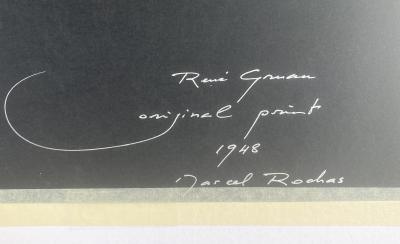 René Gruau
original print
1948
Marcel Rochas